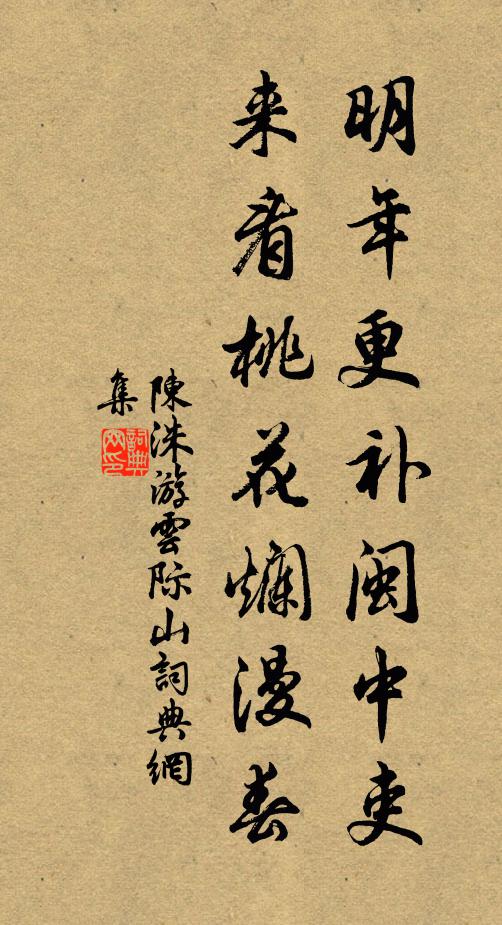 明年更补闽中吏
来看桃花烂漫春
陳洙游雲际山詞典網
集
詞典網印